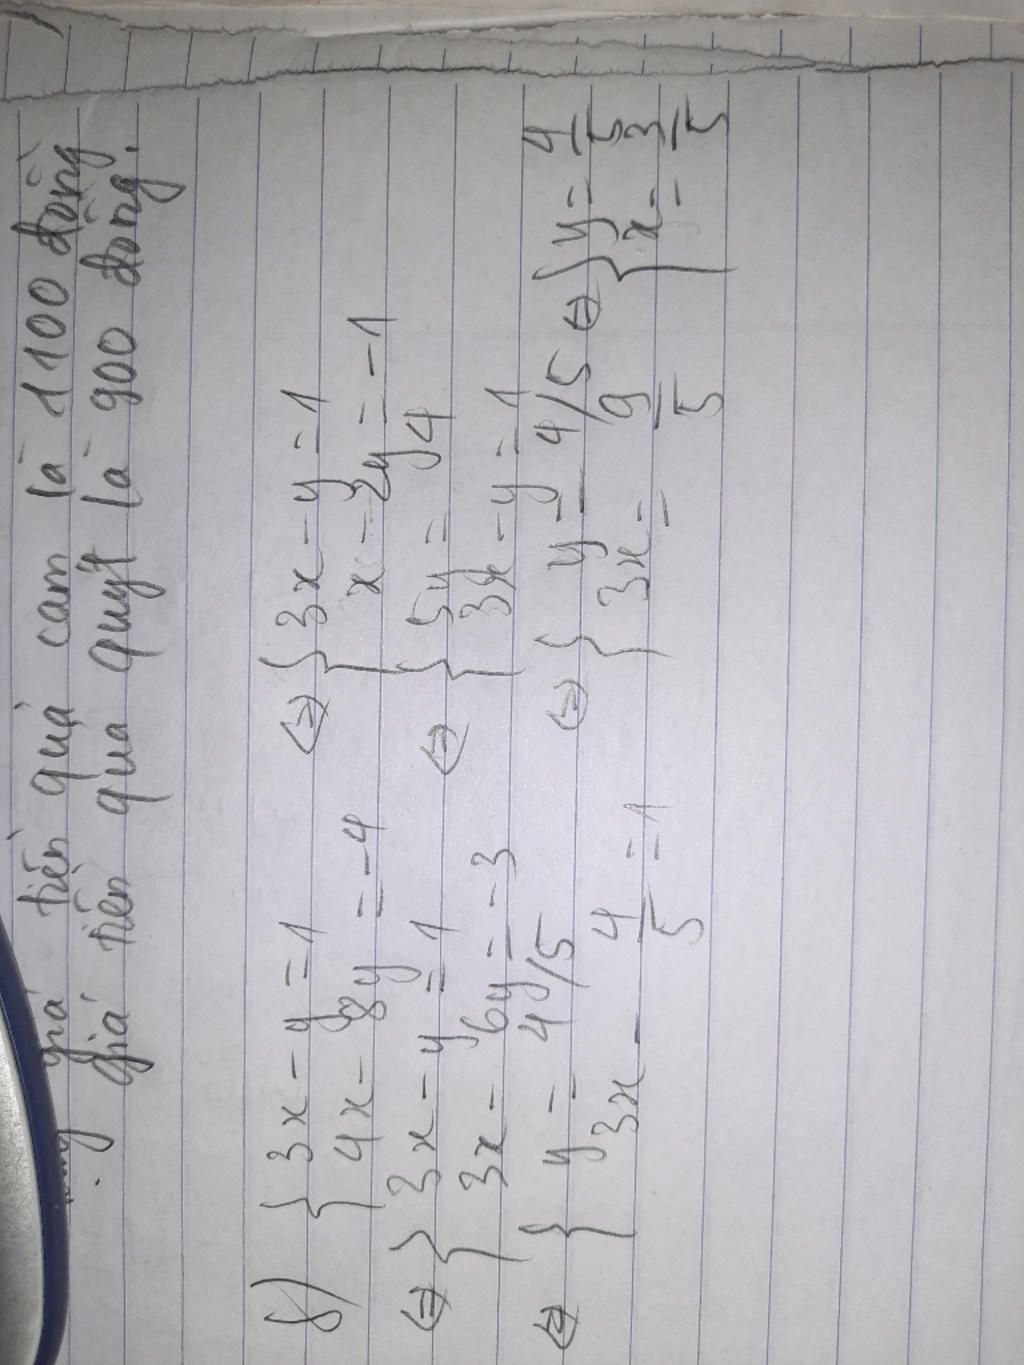 giá tiền quả cam là 1100 đồng
giá tiền quả quýt là 900 đồng.
8) { 3x - y = 1 ⇔ { 3x - y = 1
4x - 8y = -4 x - 2y = -1
⇔ { 3x - y = 1 ⇔ { 5y = 4
3x - 6y = -3 3x - y = 1
⇔ { y = 4/5 ⇔ { y = 4/5 ⇔ { y = 4/5
3x - 4/5 = 1 3x = 9/5 x = 3/5